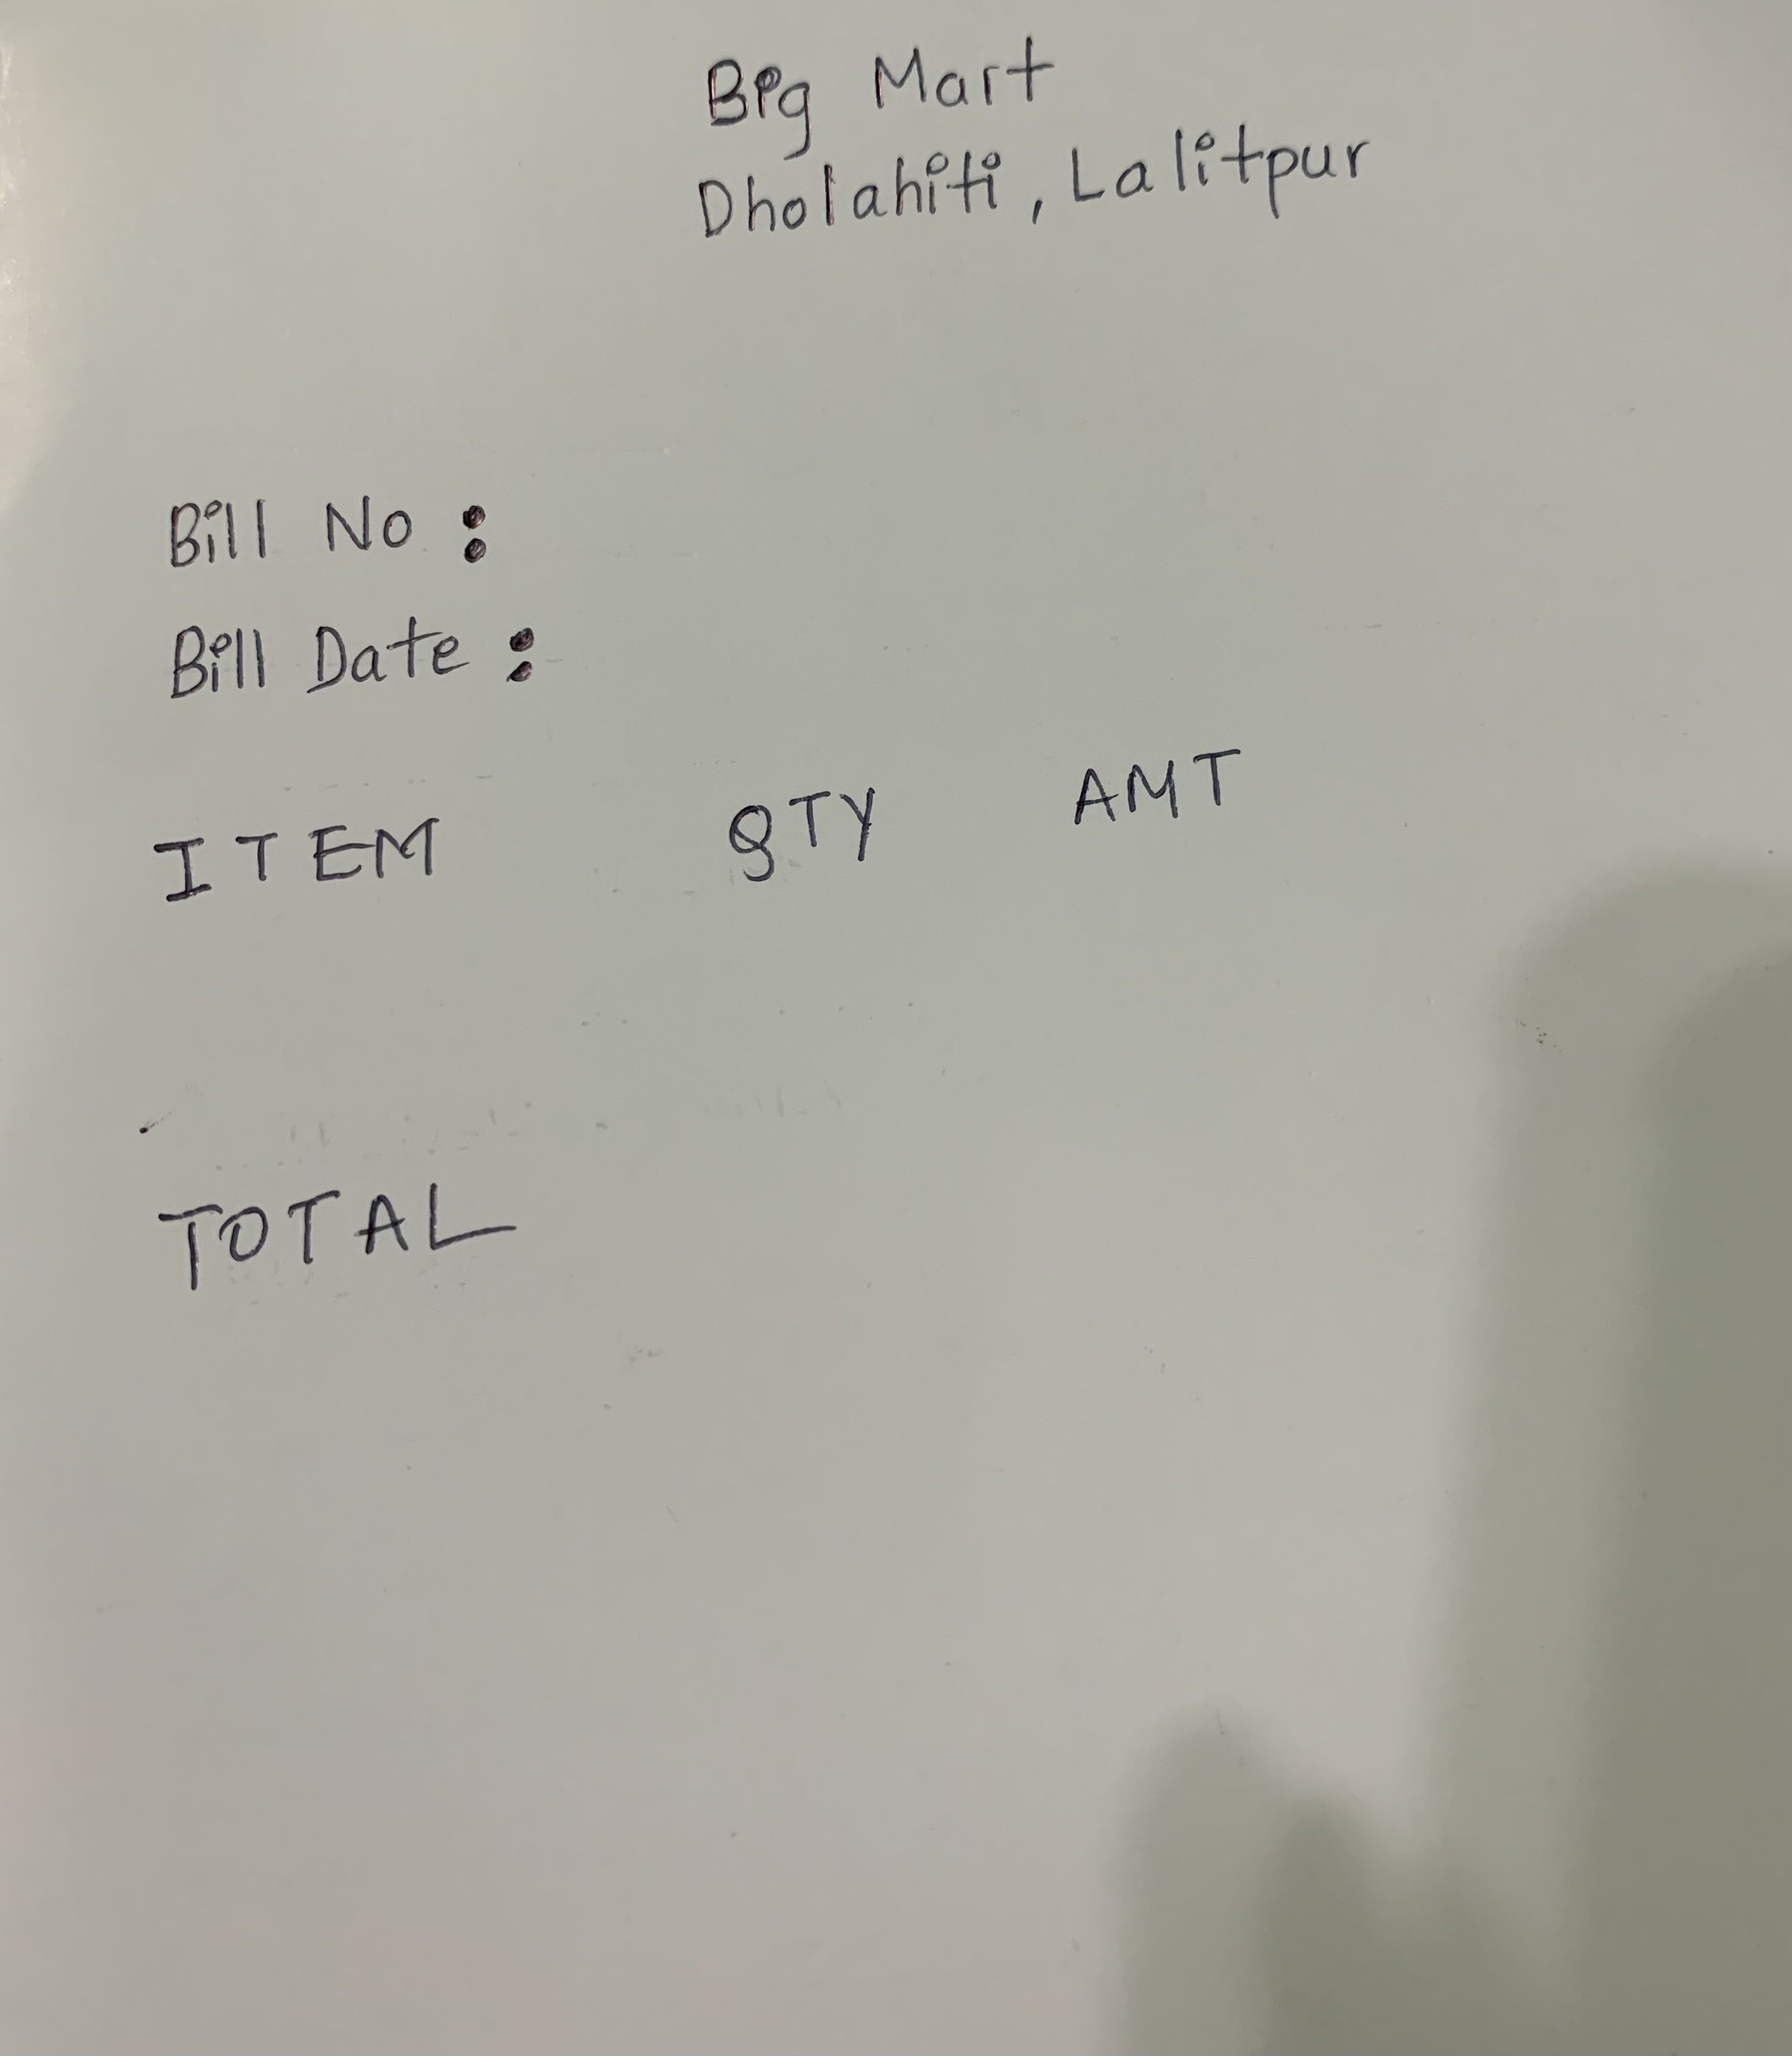 Big Mart
Dholahiti, Lalitpur
Bill No :
Bill Date :
ITEM QTY AMT
TOTAL